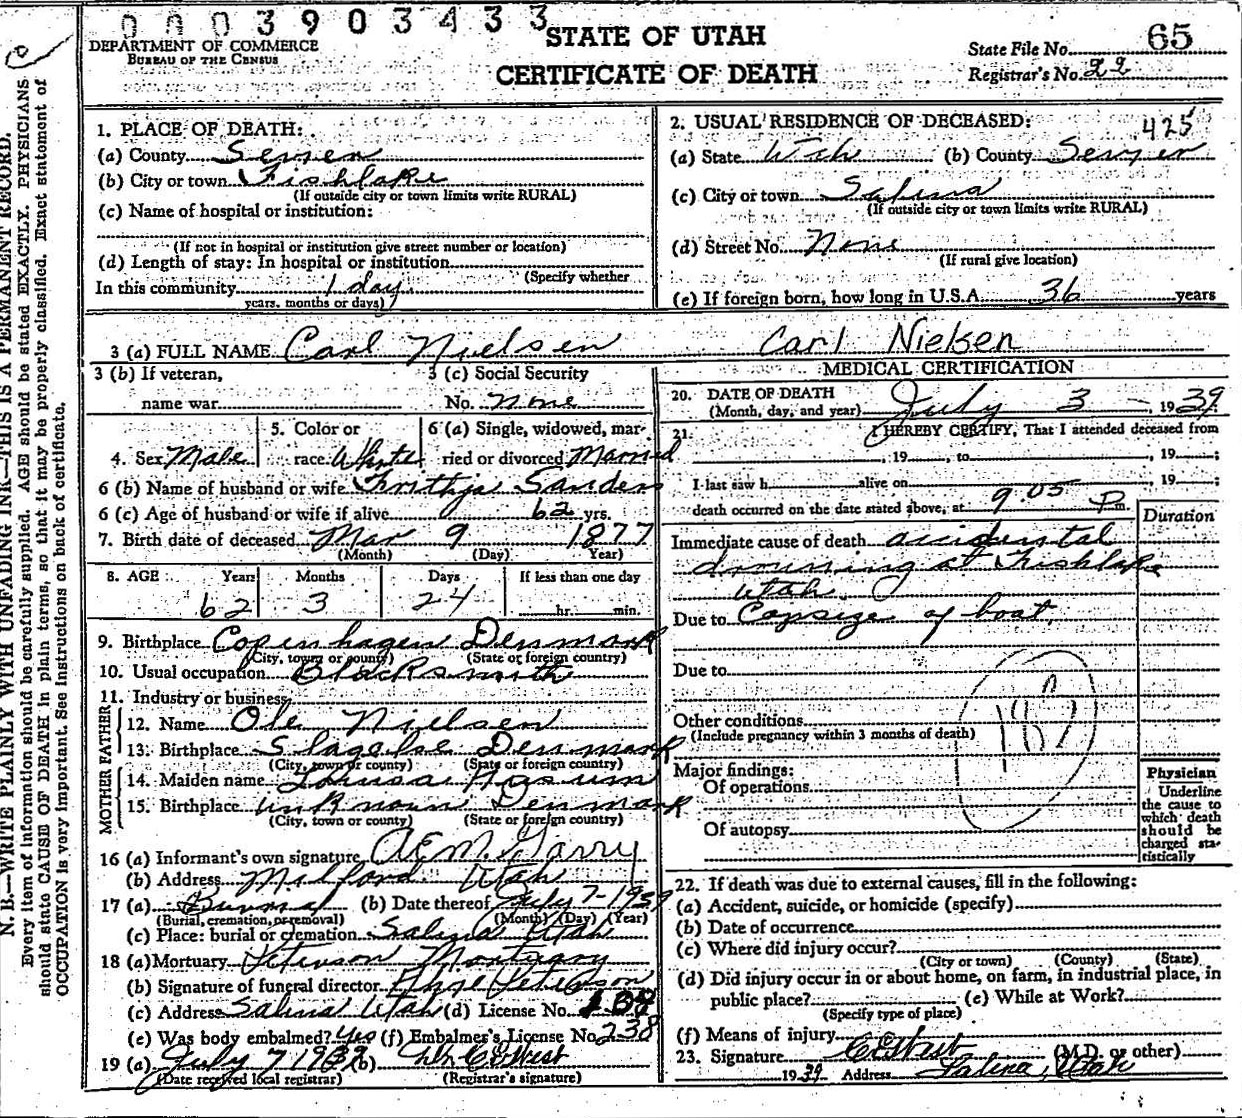 0003903433
STATE OF UTAH
CERTIFICATE OF DEATH
DEPARTMENT OF COMMERCE
BUREAU OF THE CENSUS
State File No. 65
Registrar's No. 22
N. B.—WRITE PLAINLY WITH UNFADING INK—THIS IS A PERMANENT RECORD.
Every item of information should be carefully supplied. AGE should be stated EXACTLY. PHYSICIANS
should state CAUSE OF DEATH in plain terms, so that it may be properly classified. Exact statement of
OCCUPATION is very important. See instructions on back of certificate.
1. PLACE OF DEATH:
(a) County Sevier
(b) City or town Fishlake
(If outside city or town limits write RURAL)
(c) Name of hospital or institution:
(If not in hospital or institution give street number or location)
(d) Length of stay: In hospital or institution
(Specify whether
In this community 1 day
years, months or days)
2. USUAL RESIDENCE OF DECEASED:
425
(a) State Utah (b) County Sevier
(c) City or town Salina
(If outside city or town limits write RURAL)
(d) Street No. None
(If rural give location)
(e) If foreign born, how long in U.S.A. 36 years
3 (a) FULL NAME Carl Nielsen Carl Nielsen
3 (b) If veteran,
name war
3 (c) Social Security
No. none
4. Sex Male
5. Color or
race White
6 (a) Single, widowed, mar-
ried or divorced Married
6 (b) Name of husband or wife Sanders
6 (c) Age of husband or wife if alive 62 yrs.
7. Birth date of deceased Mar 9 1877
(Month) (Day) Year)
8. AGE Years Months Days If less than one day
62 3 24 hr. min.
9. Birthplace Copenhagen Denmark
(City, town or county) (State or foreign country)
10. Usual occupation Blacksmith
11. Industry or business
FATHER
12. Name Ole Nielsen
13. Birthplace Slagelse Denmark
(City, town or county) (State or foreign country)
MOTHER
14. Maiden name Louisa
15. Birthplace unknown Denmark
(City, town or county) (State or foreign country)
16 (a) Informant's own signature
(b) Address Milford Utah
17 (a) Burial (b) Date thereof July 7-1939
(Burial, cremation, or removal) (Month) (Day) (Year)
(c) Place: burial or cremation Salina Utah
18 (a) Mortuary Peterson Mortuary
(b) Signature of funeral director Peterson
(c) Address Salina Utah (d) License No.
(e) Was body embalmed? Yes (f) Embalmer's License No. 238
19 (a) July 7 1939 (b) C E West
(Date received local registrar) (Registrar's signature)
MEDICAL CERTIFICATION
20. DATE OF DEATH
(Month, day, and year) July 3 - 1939
21. I HEREBY CERTIFY, That I attended deceased from
, 19 , to , 19 ;
I last saw h alive on , 19 ;
death occurred on the date stated above, at 9 05 P m.
Duration
Immediate cause of death accidental
drowning at Fishlake
Utah.
Due to Capsize of boat.
Due to
Other conditions
(Include pregnancy within 3 months of death)
Major findings:
Of operations
Of autopsy
Physician
Underline
the cause to
which death
should be
charged sta-
tistically
22. If death was due to external causes, fill in the following:
(a) Accident, suicide, or homicide (specify)
(b) Date of occurrence
(c) Where did injury occur?
(City or town) (County) (State)
(d) Did injury occur in or about home, on farm, in industrial place, in
public place? (e) While at Work?
(Specify type of place)
(f) Means of injury
23. Signature C E West (M.D. or other)
1939 Address Salina, Utah